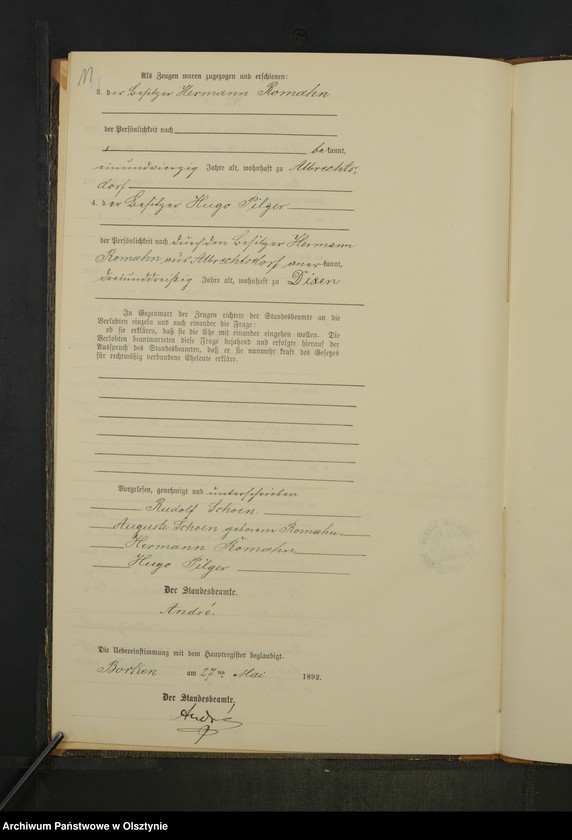 Als Zeugen waren zugezogen und erschienen:
3. der Besitzer Hermann Romahn
der Persönlichkeit nach
bekannt,
einundvierzig Jahre alt, wohnhaft zu Albrechts-
dorf
4. der Besitzer Hugo Pilger
der Persönlichkeit nach durch den Besitzer Hermann
Romahn aus Albrechtsdorf anerkannt,
dreiunddreißig Jahre alt, wohnhaft zu Dixen
In Gegenwart der Zeugen richtete der Standesbeamte an die
Verlobten einzeln und nach einander die Frage:
ob sie erklären, daß sie die Ehe mit einander eingehen wollen. Die
Verlobten beantworteten diese Frage bejahend und erfolgte hierauf der
Ausspruch des Standesbeamten, daß er sie nunmehr kraft des Gesetzes
für rechtmäßig verbundene Eheleute erkläre.
Vorgelesen, genehmigt und unterschrieben
Rudolf Schoen
Auguste Schoen geborene Romahn
Hermann Romahn
Hugo Pilger
Der Standesbeamte.
André.
Die Uebereinstimmung mit dem Hauptregister beglaubigt.
Borken am 27ten Mai 1892.
Der Standesbeamte.
André
Archiwum Państwowe w Olsztynie